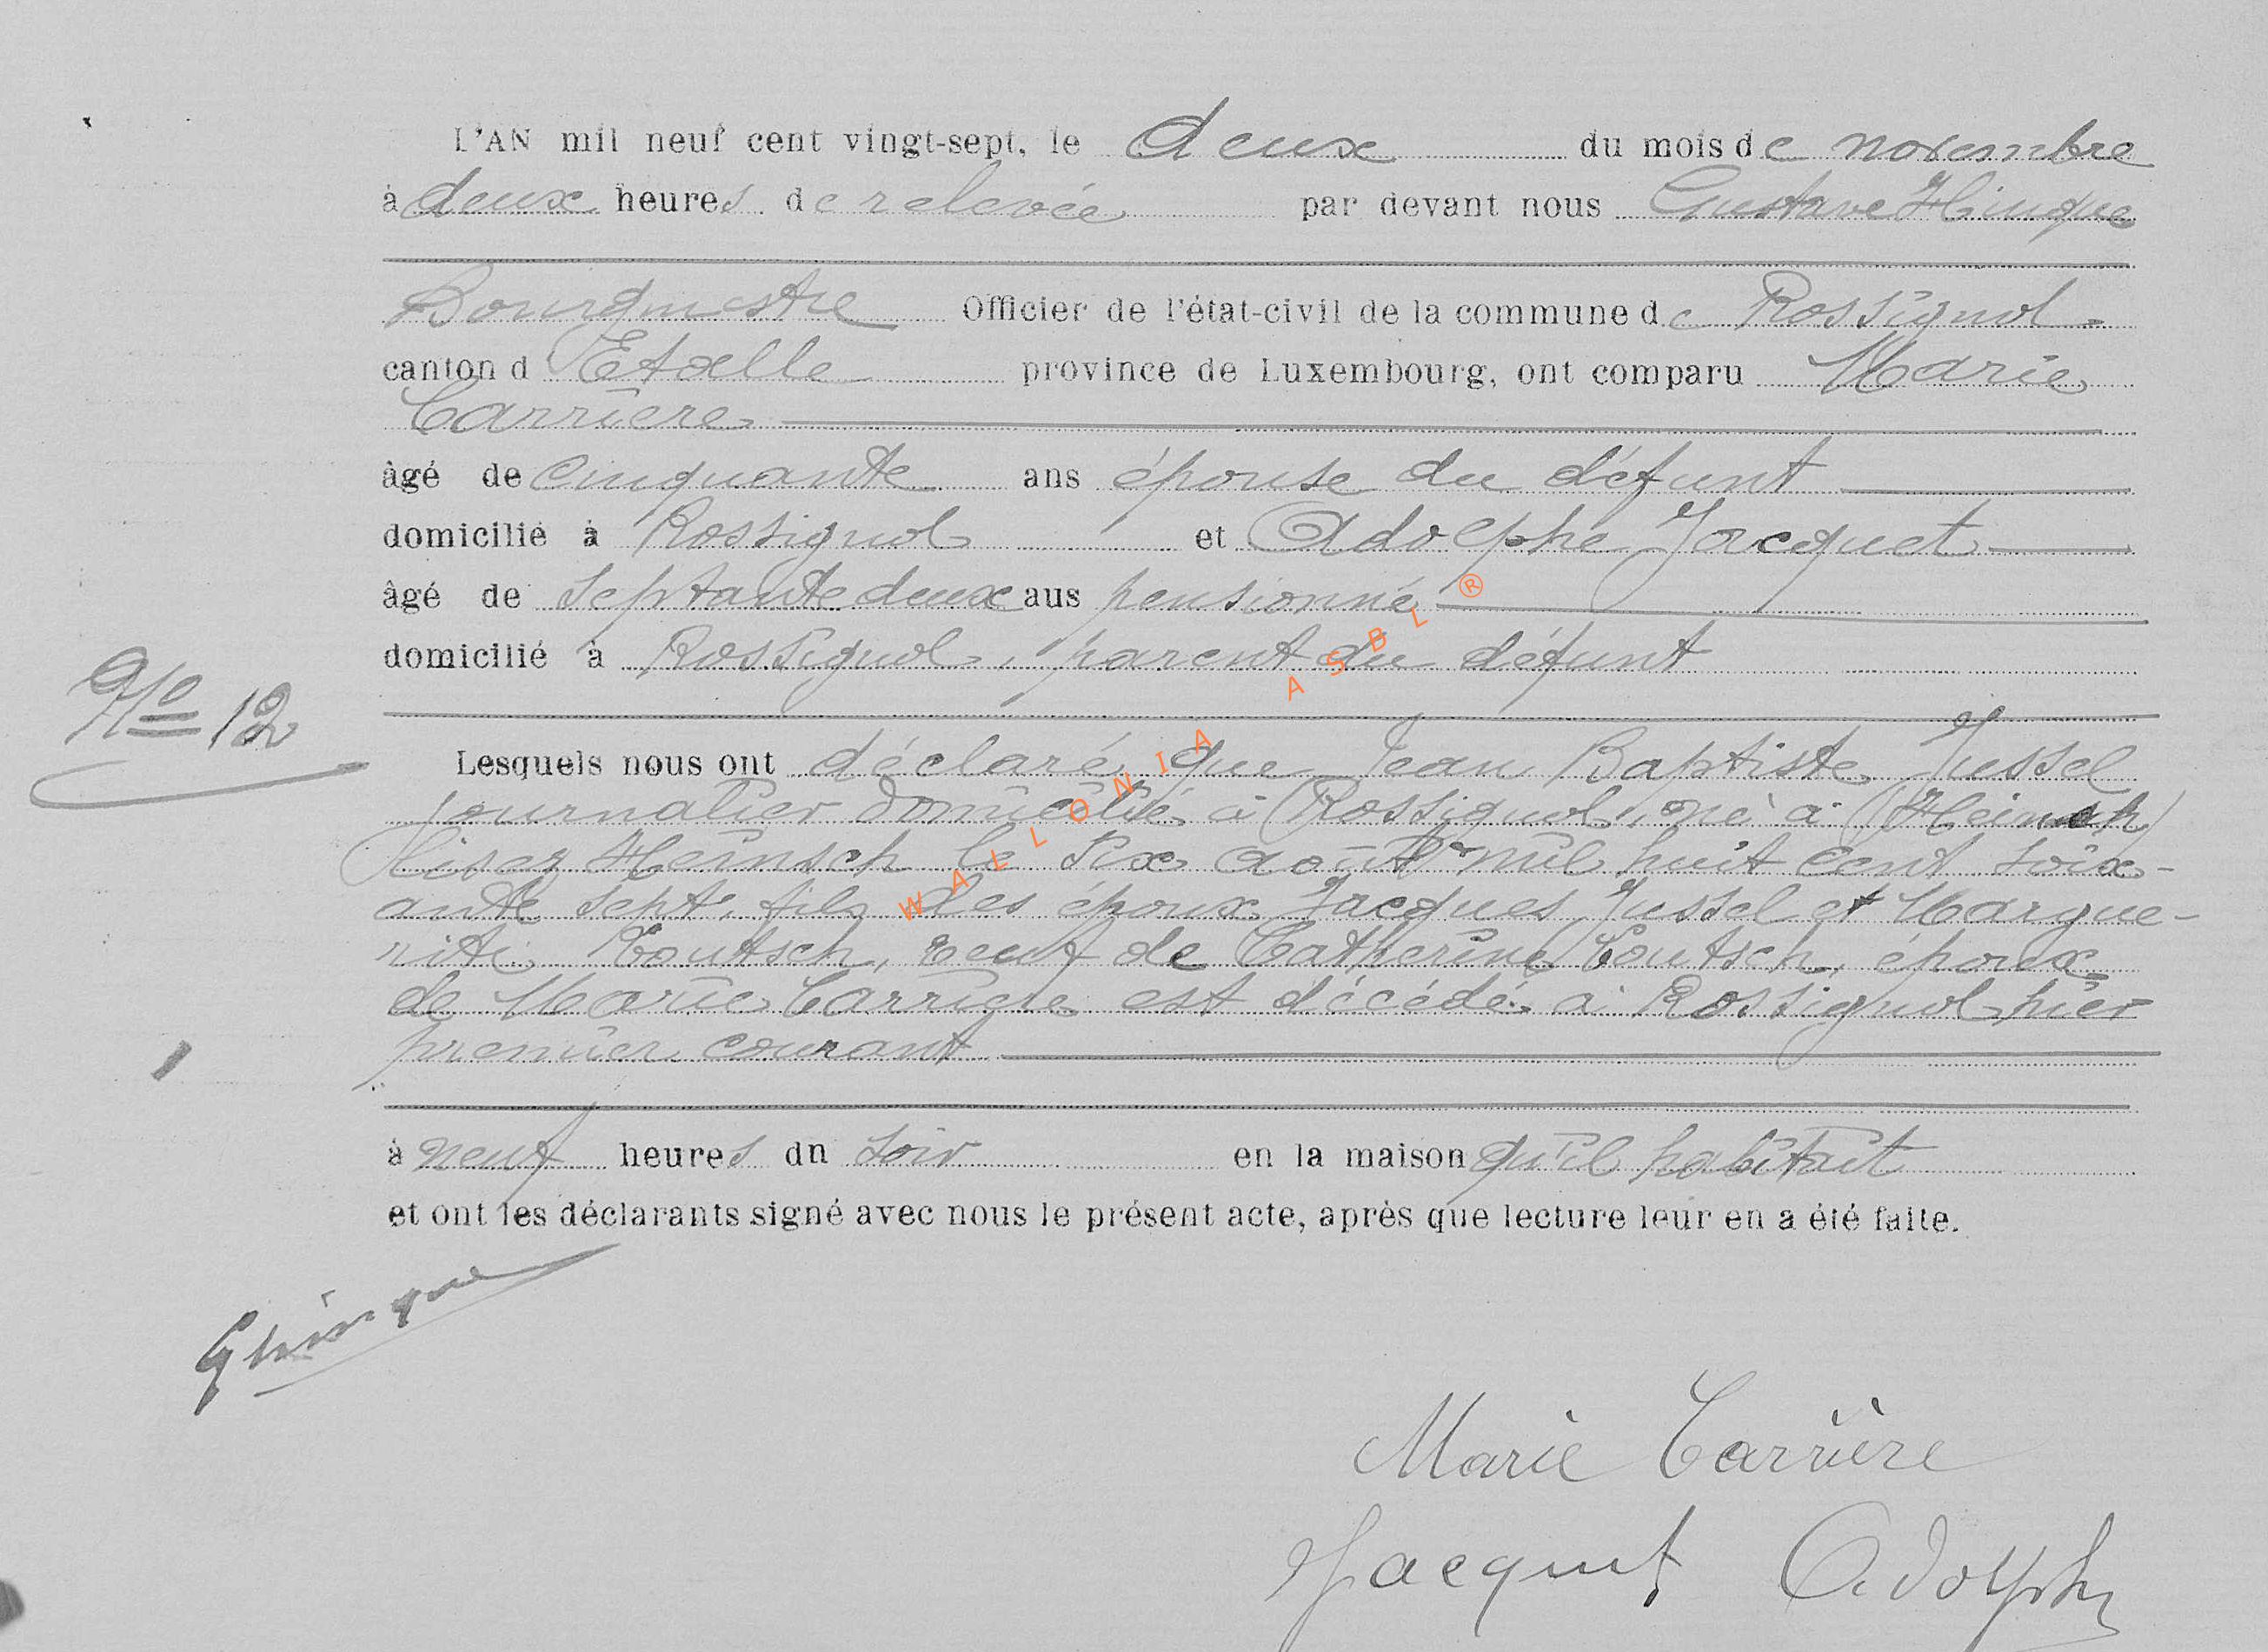 L'AN mil neuf cent vingt-sept, le deux du mois de novembre
à deux heures de relevée par devant nous Gustave Hinque
Bourgmestre Officier de l'état-civil de la commune de Rossignol
canton d'Etalle province de Luxembourg, ont comparu Marie
Carrière
âgé de cinquante ans épouse du défunt
domicilié à Rossignol et Adolphe Jacquet
âgé de septante deux ans pensionné
domicilié à Rossignol, parent du défunt
No 12
Lesquels nous ont déclaré que Jean Baptiste Jussel
journalier domicilié à Rossignol, né à (Heinsch)
lisez Heinsch le six août mil huit cent soix-
ante sept, fils des époux Jacques Jussel et Margue-
rite Coutsch, veuf de Catherine Coutsch, époux
de Marie Carrière est décédé à Rossignol hier
premier courant
à neuf heures du soir en la maison qu'il habitait
et ont les déclarants signé avec nous le présent acte, après que lecture leur en a été faite.
GHinque
Marie Carrière
Jacquet Adolphe
WALLONIA ASBL ®